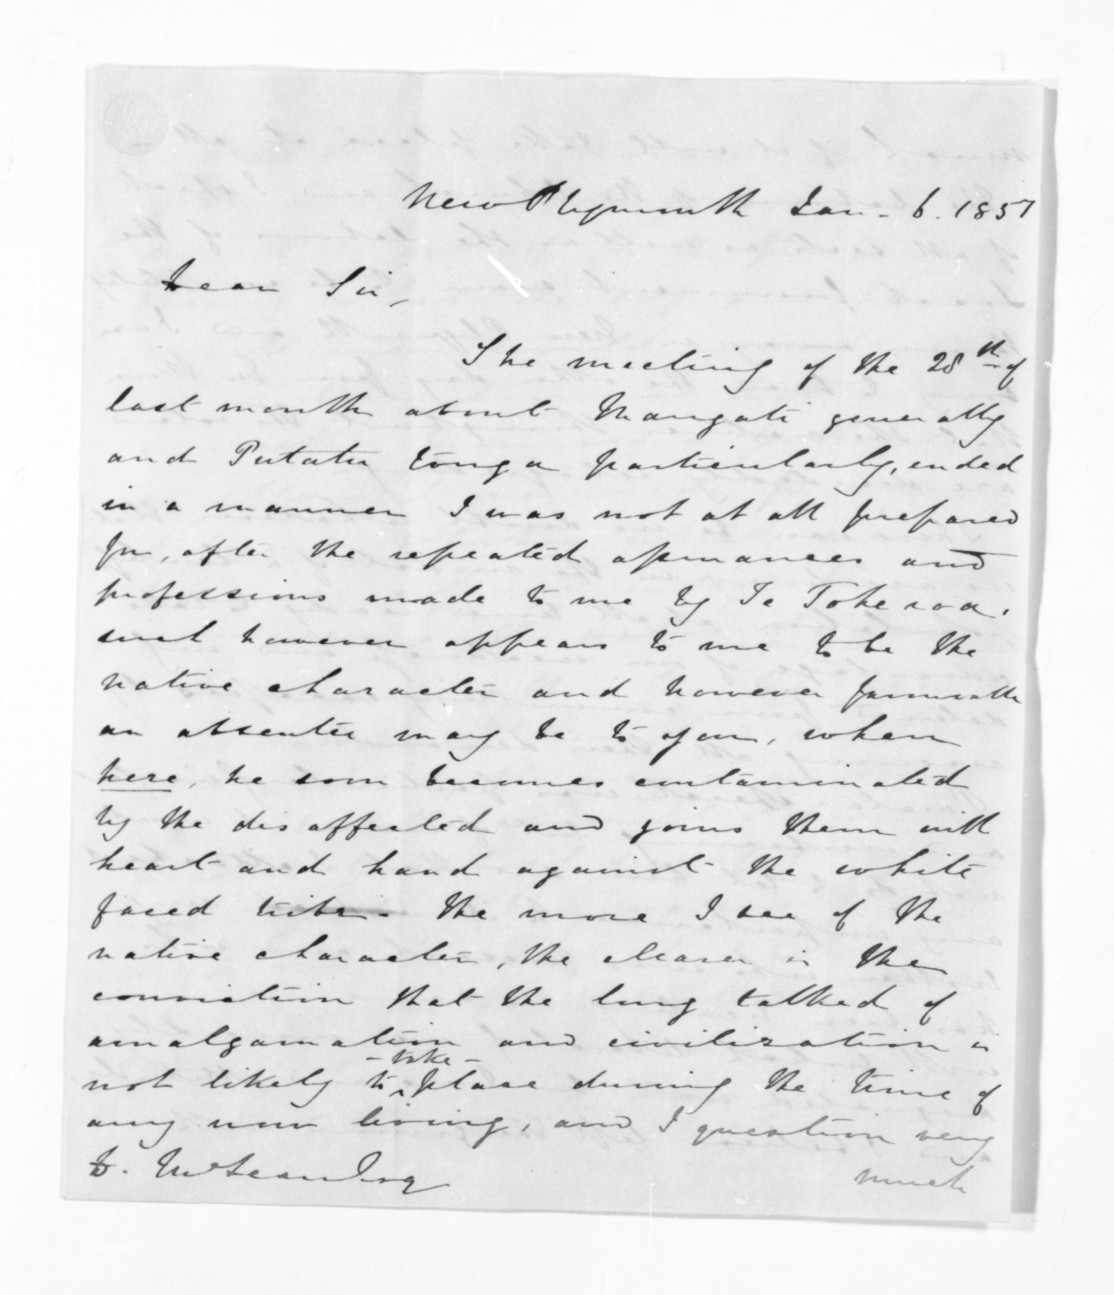 New Plymouth Jan. 6. 1851
Dear Sir,
The meeting of the 28th of
last month about Mangati generally
and Putatu tonga particularly, ended
in a manner I was not at all prepared
for, after the repeated assurances and
professions made to me by Te Tokeroa.
such however appears to me to be the
native character and however favourable
an absentee may be to you, when
here, he soon becomes contaminated
by the disaffected and joins them with
heart and hand against the white
faced tribe. The more I see of the
native character, the clearer is the
conviction that the long talked of
amalgamation and civilization is
not likely to take place during the time of
any now living, and I question very
much
D. McLean Esq